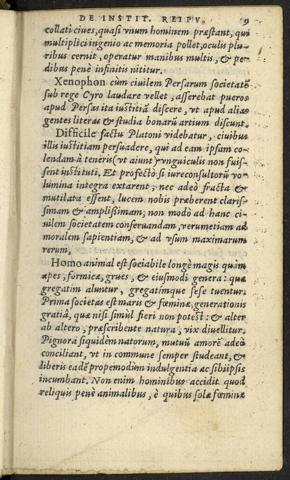 DE INSTIT. REIPV. 9
collati ciues, quasi vnum hominem præstant, qui
multiplici ingenio ac memoria pollet, oculis plu-
ribus cernit, operatur manibus multis, & pe-
dibus penè infinitis nititur.
Xenophon cùm ciuilem Persarum societatẽ
sub rege Cyro laudare vellet, asserebat pueros
apud Persas ita iustitiã discere, vt apud alias
gentes literas & studia bonarũ artium discunt.
Difficile factu Platoni videbatur, ciuibus
illis iustitiam persuadere, qui ad eam ipsam co-
lendam à teneris vt aiunt vnguiculis non fuis-
sent instituti. Et profectò si iureconsultorũ vo-
lumina integra extarent, nec adeò fracta &
mutilata essent, lucem nobis præberent claris-
simam & amplissimam, non modò ad hanc ci-
uilem societatem conseruandam, verumetiam ad
moralem sapientiam, & ad vsum maximarum
rerum.
Homo animal est sociabile longè magis quàm
apes, formicæ, grues, & eiusmodi genera quæ
gregatim aluntur, gregatimque sese tuentur.
Prima societas est maris & fœminæ, generationis
gratiâ, quæ nisi simùl fieri non potest: & alter
ab altero, præscribente natura, vix diuellitur.
Pignora siquidẽ natorum, mutuũ amorẽ adeò
conciliant, vt in commune semper studeant, &
liberis eadẽ propemodùm indulgentia ac sibiipsis
incumbant. Non enim hominibus accidit quod
reliquis penè animalibus, è quibus solæ fœminæ